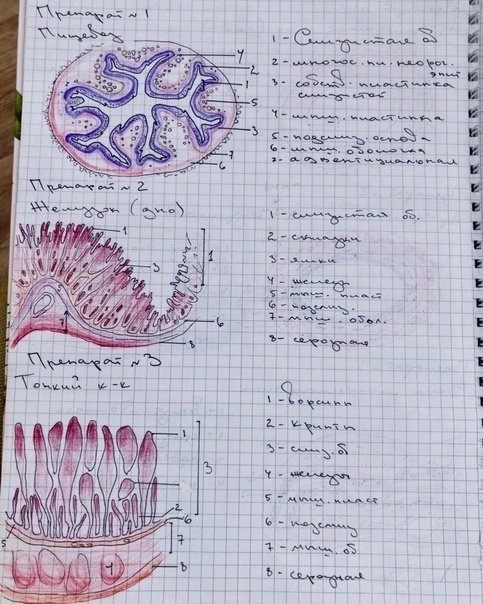 Препарат №1
Пищевод
1 - Слизистая об
2 - многос. пл. неорог. эпит
3 - собств. пластинка слизистой
4 - мыш. пластинка
5 - подслиз. основа
6 - мыш. оболочка
7 - адвентициальная
4
2
1
5
3
7
6
Препарат №2
Желудок (дно)
1 - слизистая об.
2 - складки
3 - ямки
4 - железы
5 - мыш. пласт
6 - подслиз.
7 - мыш. обол.
8 - серозная
1
3
1
6
8
7
Препарат №3
Тонкий к-к
1 - ворсин
2 - крипты
3 - слиз. об
4 - железы
5 - мыш. пласт
6 - подслиз
7 - мыш. об
8 - серозная
1
3
2
6
5
7
8
4